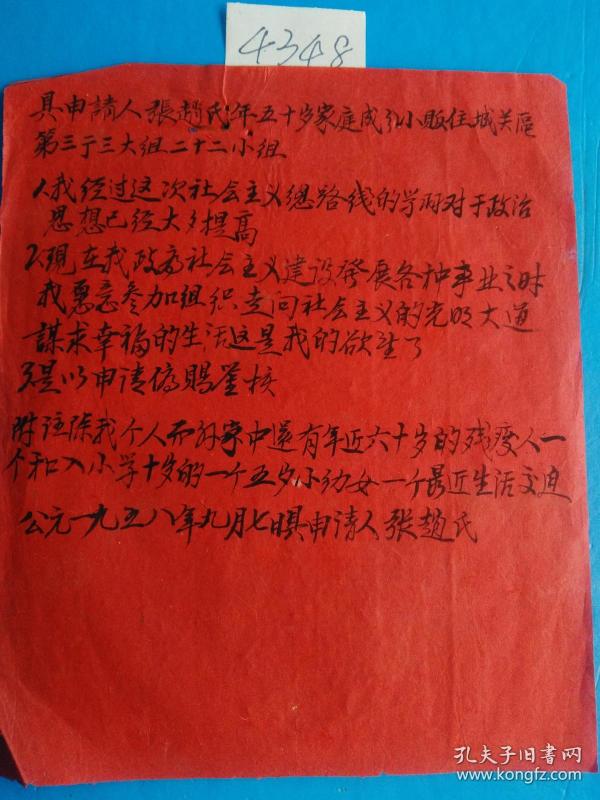 4348
具申請人張趙氏年五十岁家庭成分小販住城关區
第三于三大组二十二小组
1我经过这次社会主义總路线的学習对于政治
思想已经大多提高
2現在我政府社会主义建设發展各种事业之时
我愿意参加组织走向社会主义的光明大道
謀求幸福的生活这是我的欲望了
3是以申请偹賜鉴核
附註除我个人而外家中還有年近六十岁的残废人一
个和入小学十岁的一个五岁小幼女一个最近生活交迫
公元一九五八年九月七日具申请人张趙氏
孔夫子旧書网
www.kongfz.com